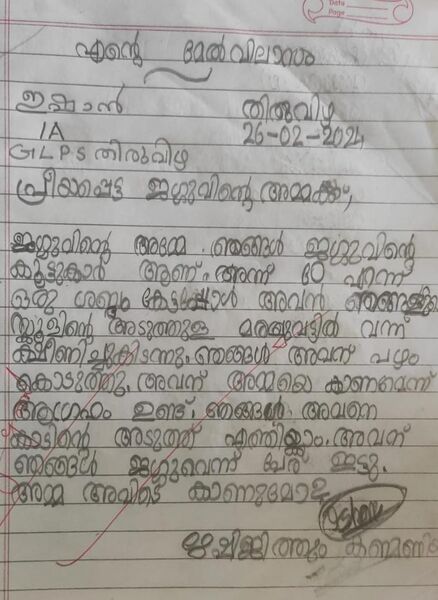 Date
Page
എന്റെ മേൽവിലാസം
ഇഷാൻ തിരുവിഴ
1A 26-02-2024
GLPS തിരുവിഴ
പ്രീയപ്പെട്ട ജഗ്ഗുവിന്റെ അമ്മക്ക്,
ജഗ്ഗുവിന്റെ അമ്മേ. ഞങ്ങൾ ജഗ്ഗുവിന്റെ
കൂട്ടുകാർ ആണ്. അന്ന് ഠേ എന്ന്
ഒരു ശബ്ദം കേട്ടപ്പോൾ അവൻ ഞങ്ങളുടെ
സ്കൂളിന്റെ അടുത്തുള്ള മരച്ചുവട്ടിൽ വന്ന്
ക്ഷീണിച്ചുകിടന്നു. ഞങ്ങൾ അവന് പഴം
കൊടുത്തു. അവന് അമ്മയെ കാണണമെന്ന്
ആഗ്രഹം ഉണ്ട്. ഞങ്ങൾ അവനെ
കാടിന്റെ അടുത്ത് എത്തിക്കാം. അവന്
ഞങ്ങൾ ജഗ്ഗുവെന്ന് പേര് ഇട്ടു.
അമ്മ അവിടെ കാണുമോ
കണ്മണി